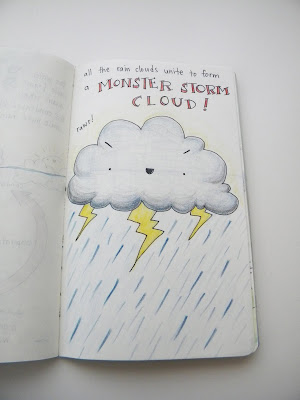 all the rain clouds unite to form
a MONSTER STORM
CLOUD!
rawr!